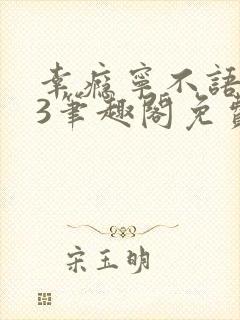 幸瘾宁不語
3筆趣閣免費
宋玉明